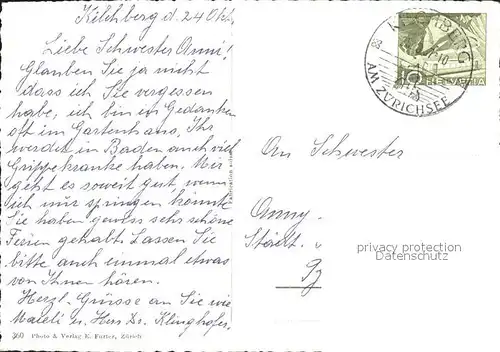 Kilchberg d. 24 Okt.
Liebe Schwester Anni!
Glauben Sie ja nicht
dass ich Sie vergessen
habe, ich bin in Gedanken
oft im Gartenhaus, Ihr
werdet in Baden auch viel
Grippekranke haben. Mir
geht es soweit gut, wenn
ich nur springen könnte
Sie haben gewiss sehr schöne
Ferien gehabt. Lassen Sie
bitte auch einmal etwas
von Ihnen hören.
Herzl. Grüsse an Sie wie
u. Herr Dr. Klinghofer.
360 Photo & Verlag K. Furter, Zürich
KILCHBERG
AM ZÜRICHSEE
10 HELVETIA
An Schwester
Anny
Städt.
privacy protection
Datenschutz